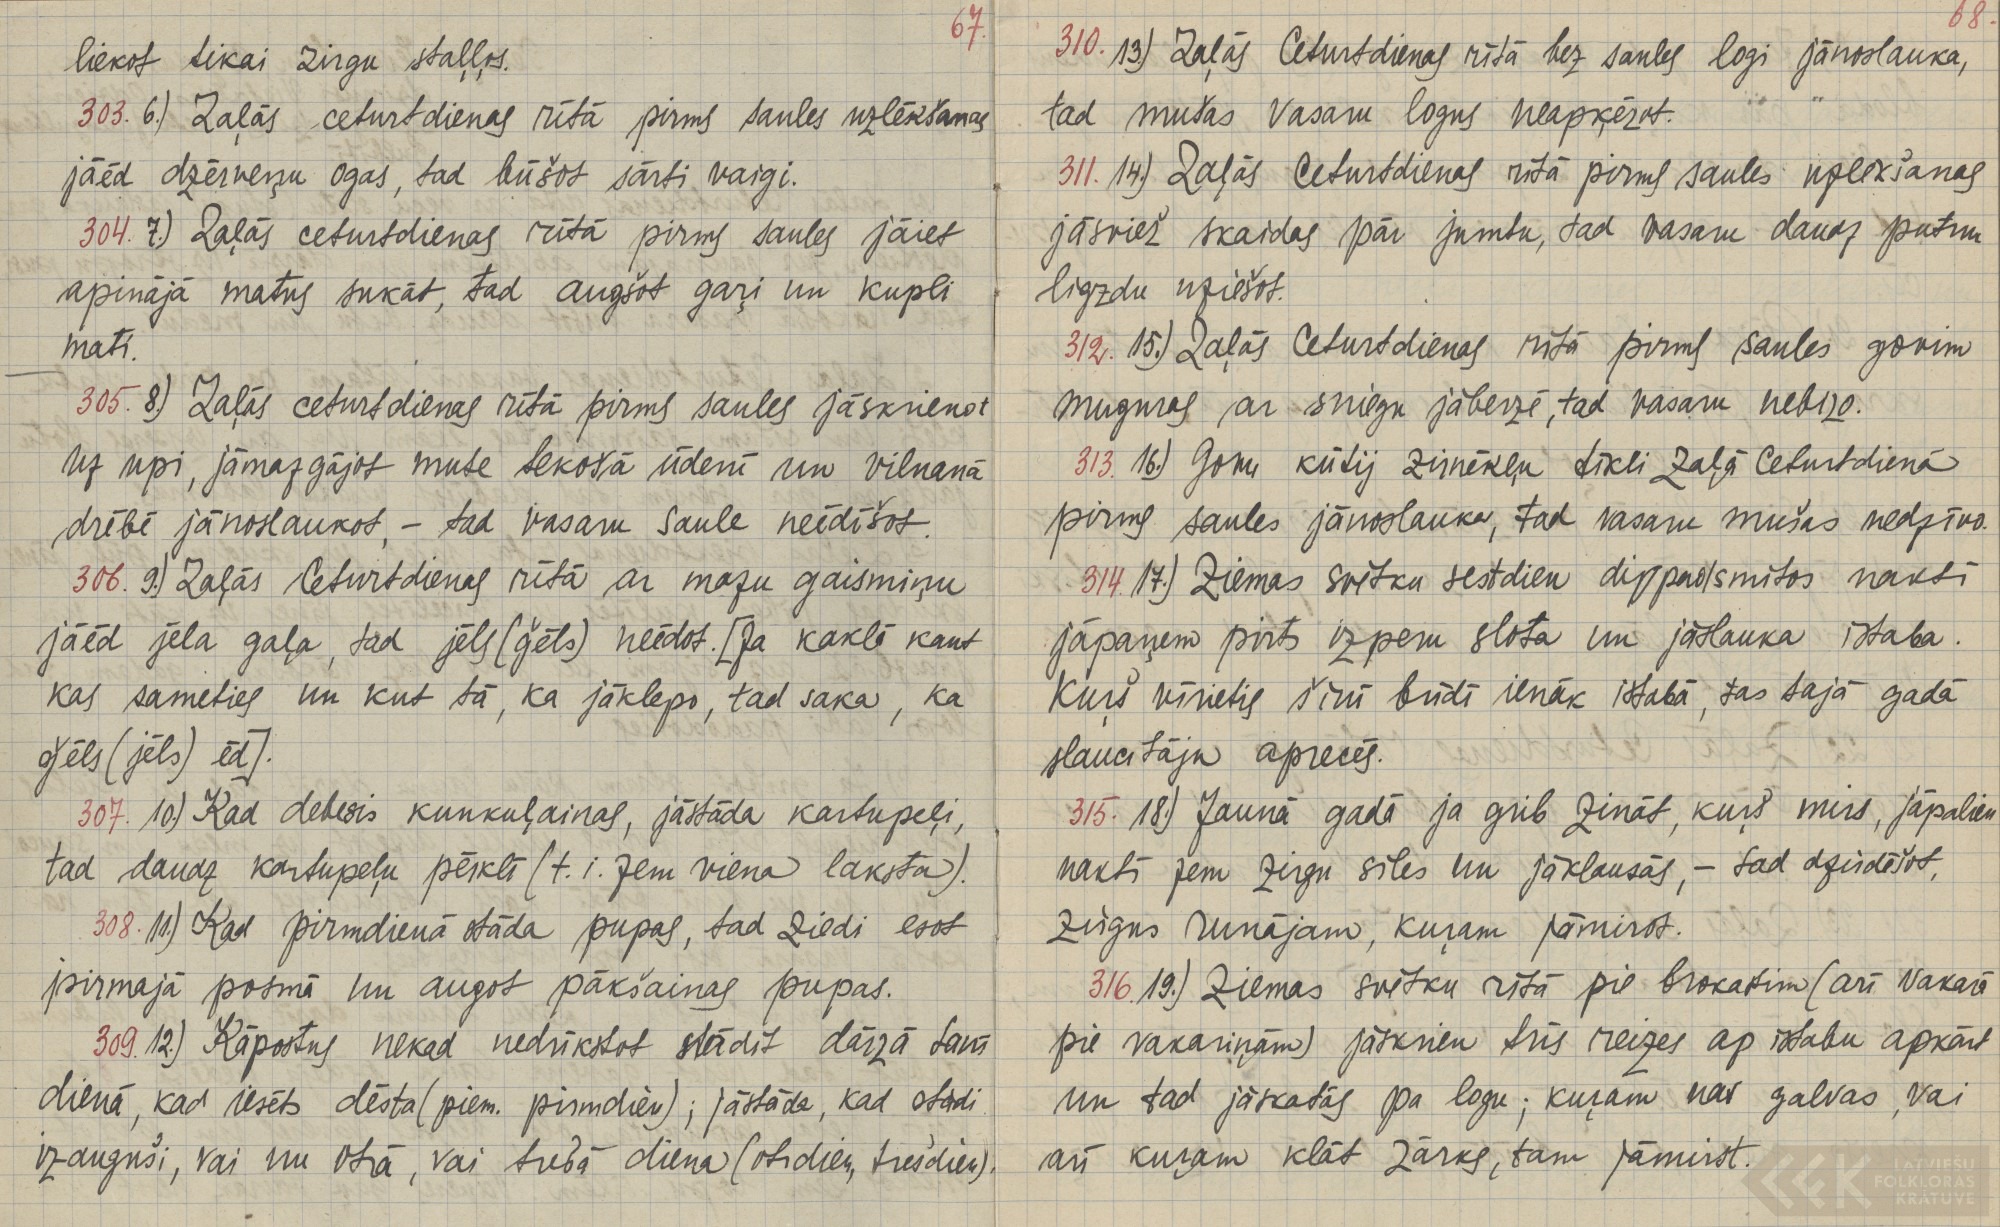 67.
liekot tikai zirgu staļļos.
303. 6.) Zaļās ceturtdienas rītā pirms saules uzlēkšanas
jāēd dzērveņu ogas, tad būšot sārti vaigi.
304. 7.) Zaļās ceturtdienas rītā pirms saules jāiet
apinājā matus sukāt, tad augšot gaŗi un kupli
mati.
305. 8.) Zaļās ceturtdienas rītā pirms saules jāskrienot
uz upi, jāmazgājot mute tekošā ūdenī un vilnanā
drēbē jānoslaukot, – tad vasaru saule neēdīšot.
306. 9.) Zaļās Ceturtdienas rītā ar mazu gaismiņu
jāēd jēla gaļa, tad jēls (ģēls) neēdot. [Ja kaklē kaut
kas sameties un kut tā, ka jāklepo, tad saka, ka
ģēls (jēls) ēd].
307. 10.) Kad debesis kunkuļainas, jāstāda kartupeļi,
tad daudz kartupeļu pērklī (t. i. zem viena laksta).
308. 11.) Kad pirmdienā stāda pupas, tad ziedi esot
pirmajā posmā un augot pākšainas pupas.
309. 12.) Kāpostus nekad nedrīkstot stādīt dārzā tanī
dienā, kad iesēts dēsta (piem. pirmdien); jāstāda, kad stādi
izauguši, vai nu otrā, vai trešā diena (otrdien, trešdien).
68.
310. 13.) Zaļās Ceturtdienas rītā bez saules logi jānoslauka,
tad mušas vasaru logus neapķēzot.
311. 14.) Zaļās Ceturtdienas rītā pirms saules uzlekšanas
jāsviež skaidas pār jumtu, tad vasaru daudz putnu
ligzdu uziešot.
312. 15.) Zaļās Ceturtdienas rītā pirms saules govim
muguras ar sniegu jāberzē, tad vasaru nebizo.
313. 16.) Govu kūtij zirnēkļu tīkli Zaļā Ceturtdienā
pirms saules jānoslauka, tad vasaru mušas nedzīvo.
314. 17.) Ziemas svētku sestdien divpadsmitos naktī
jāpaņem pirts izperu slota un jāslauka istaba.
Kuŗš vīrietis šinī brīdī ienāk istabā, tas tajā gadā
slaucītāju aprecēs.
315. 18.) Jaunā gadā ja grib zināt, kuŗš mirs, jāpalien
naktī zem zirgu siles un jāklausās, – tad dzirdēšot,
zirgus runājam, kuŗam jāmirst.
316. 19.) Ziemas svētku rītā pie brokastim (arī vakarā
pie vakariņām) jāskrien trīs reizes ap istabu apkārt
un tad jāskatās pa logu; kuŗam nav galvas, vai
arī kuŗam klāt zārks, tam jāmirst.
LATVIEŠU
FOLKLORAS
KRĀTUVE